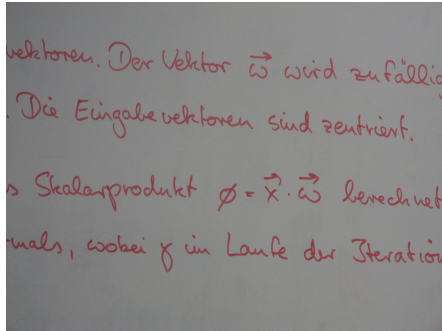 vektoren. Der Vektor ω⃗ wird zufällig
. Die Eingabevektoren sind zentriert.
s Skalarprodukt ø = x⃗ · ω⃗ berechnet
mals, wobei γ im Laufe der Iteration